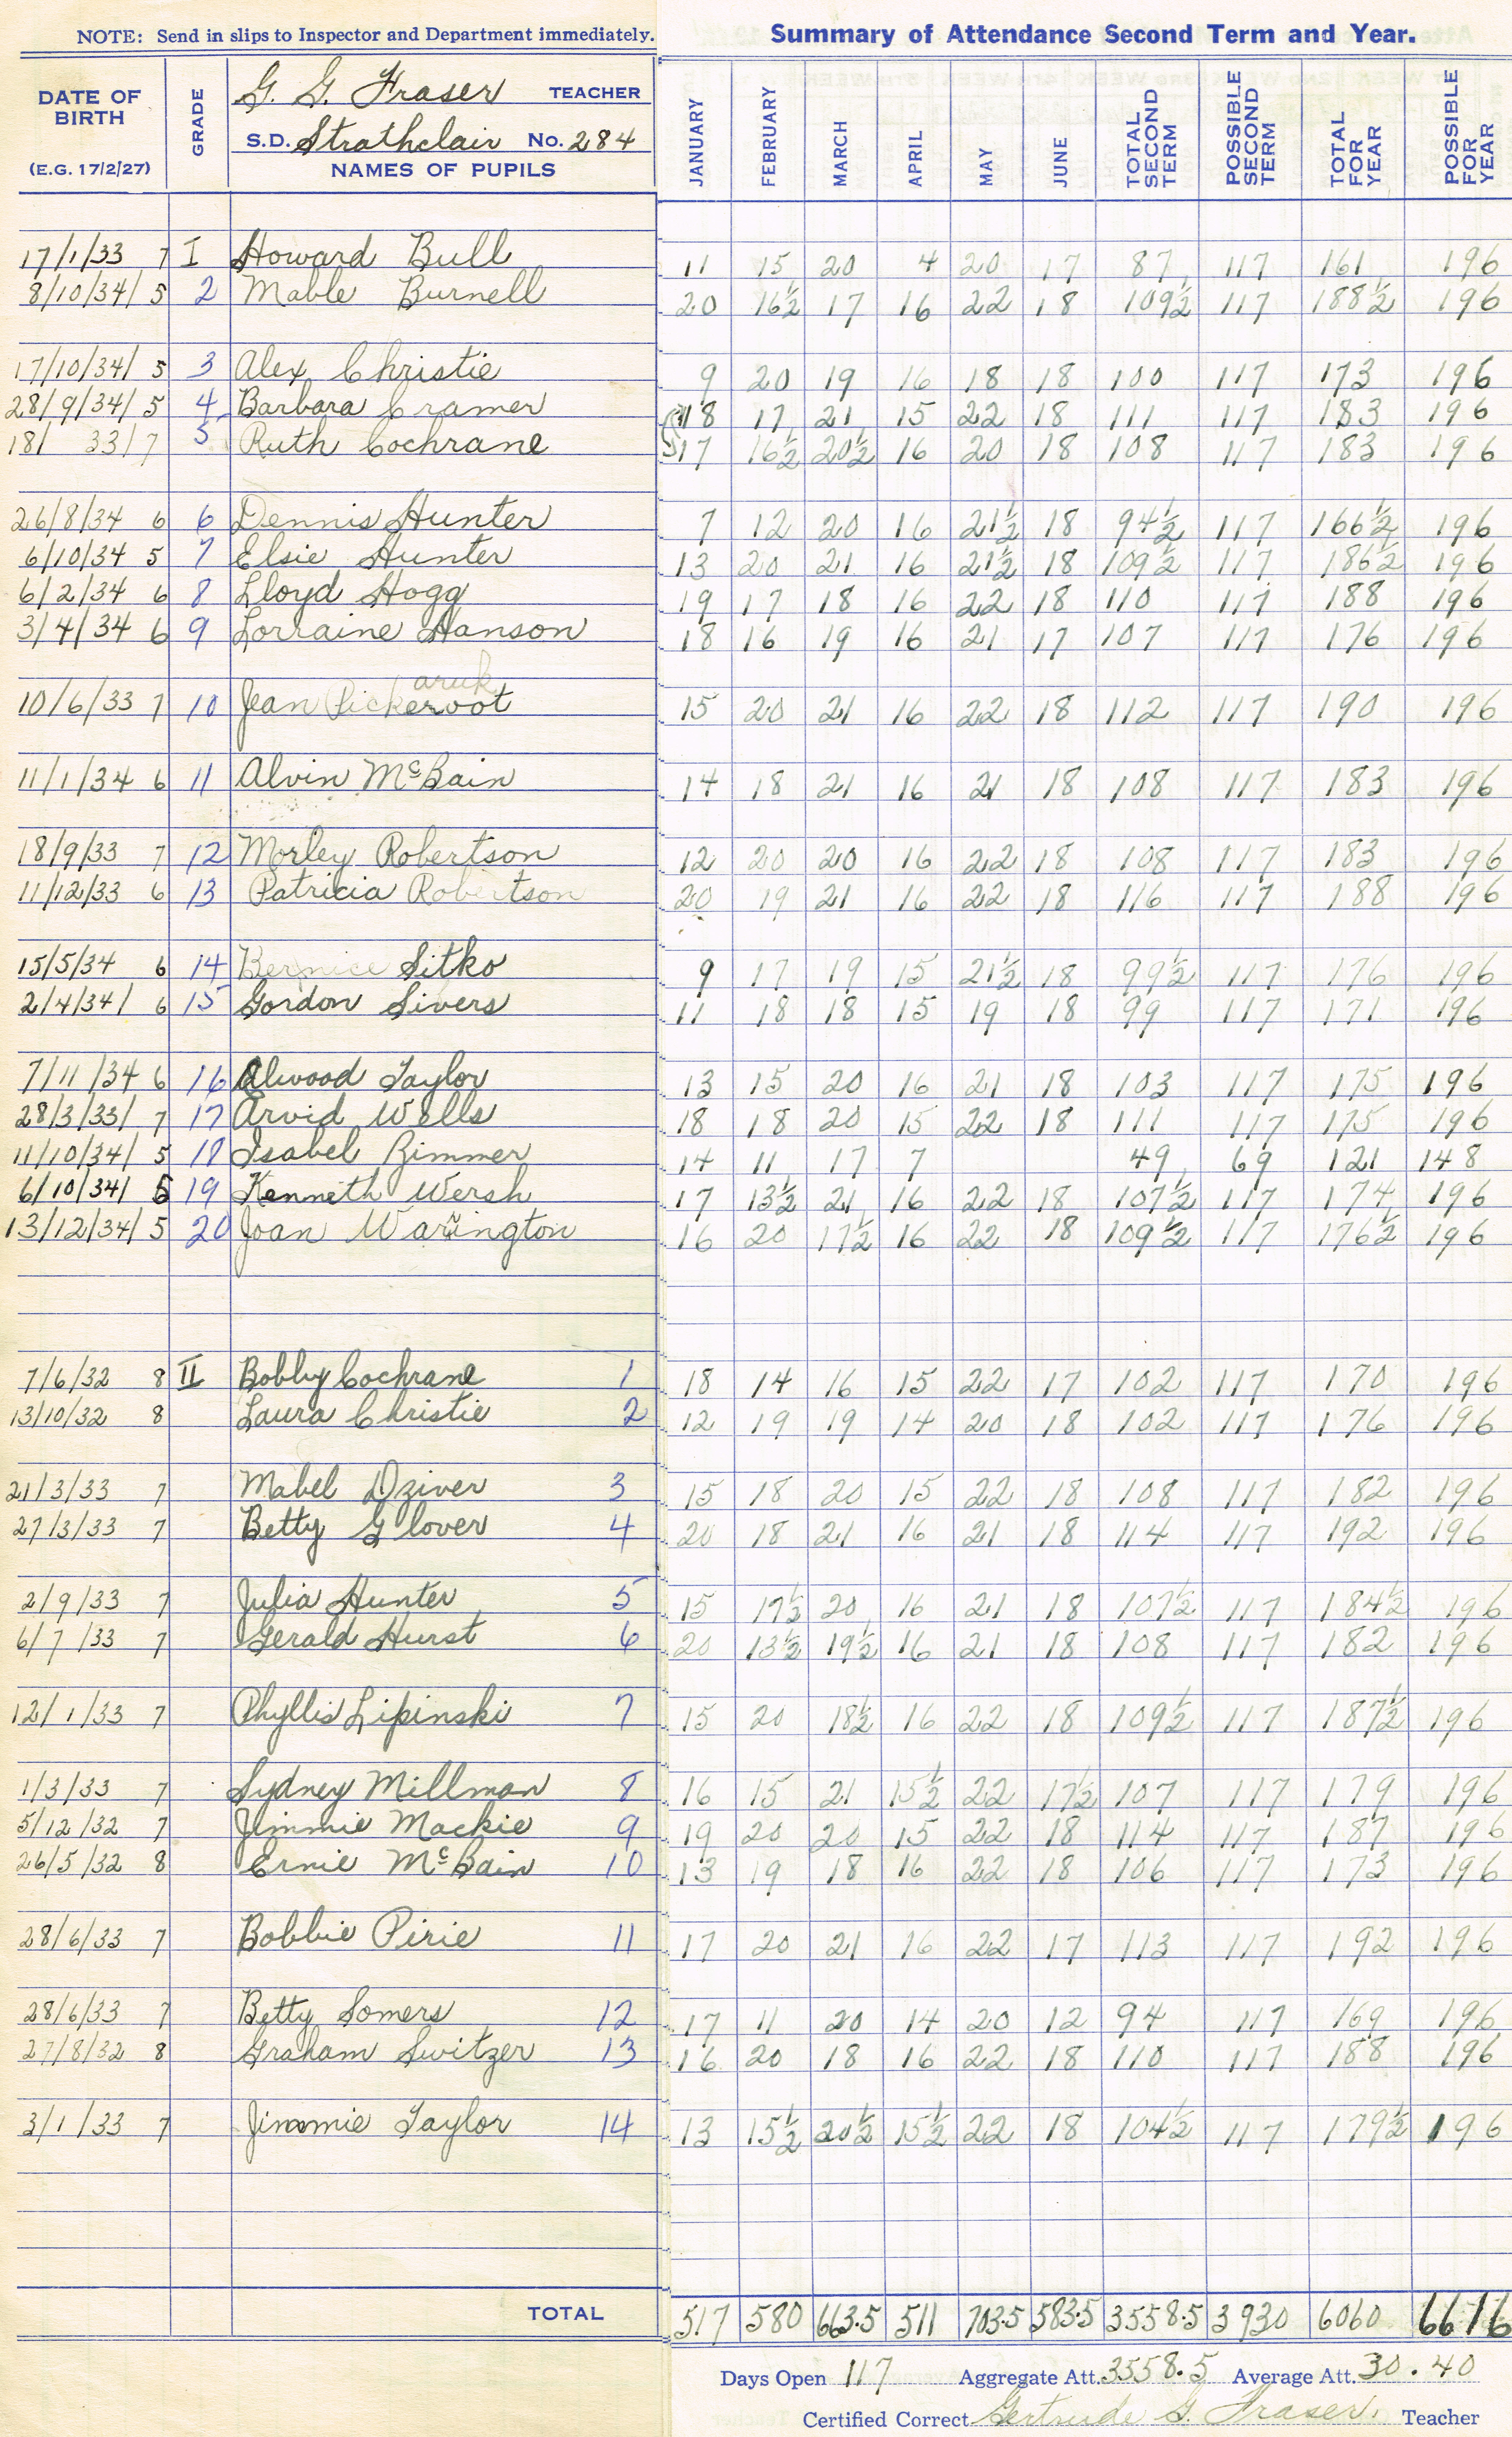 NOTE: Send in slips to Inspector and Department immediately.
Summary of Attendance Second Term and Year.
DATE OF BIRTH (E.G. 17/2/27) GRADE G. G. Fraser TEACHER
S.D. Strathclair No. 284
NAMES OF PUPILS
JANUARY FEBRUARY MARCH APRIL MAY JUNE TOTAL SECOND TERM POSSIBLE SECOND TERM TOTAL FOR YEAR POSSIBLE FOR YEAR
17/1/33 7 I Howard Bull 11 15 20 4 20 17 87 117 161 196
8/10/34/ 5 2 Mable Burnell 20 16½ 17 16 22 18 109½ 117 188½ 196
17/10/34/ 5 3 Alex Christie 9 20 19 16 18 18 100 117 173 196
28/9/34/ 5 4 Barbara Cramer 18 17 21 15 22 18 111 117 183 196
18/ 33/7 5 Ruth Cochrane 17 16½ 20½ 16 20 18 108 117 183 196
26/8/34 6 6 Dennis Hunter 7 12 20 16 21½ 18 94½ 117 166½ 196
6/10/34 5 7 Elsie Hunter 13 20 21 16 21½ 18 109½ 117 186½ 196
6/2/34 6 8 Lloyd Hogg 19 17 18 16 22 18 110 117 188 196
3/4/34 6 9 Lorraine Hanson 18 16 19 16 21 17 107 117 176 196
aruk
10/6/33 7 10 Jean Pickeroot 15 20 21 16 22 18 112 117 190 196
11/1/34 6 11 Alvin McBain 14 18 21 16 21 18 108 117 183 196
18/9/33 7 12 Morley Robertson 12 20 20 16 22 18 108 117 183 196
11/12/33 6 13 Patricia Robertson 20 19 21 16 22 18 116 117 188 196
15/5/34 6 14 Bernice Sitko 9 17 19 15 21½ 18 99½ 117 176 196
2/4/34/ 6 15 Gordon Sivers 11 18 18 15 19 18 99 117 171 196
7/11/34 6 16 Alwood Taylor 13 15 20 16 21 18 103 117 175 196
28/3/33/ 7 17 Arvid Wells 18 18 20 15 22 18 111 117 175 196
11/10/34/ 5 18 Isabel Rimmer 14 11 17 7 49 69 121 148
6/10/34/ 5 19 Kenneth Wersh 17 13½ 21 16 22 18 107½ 117 174 196
13/12/34/ 5 20 Joan Warington 16 20 17½ 16 22 18 109½ 117 176½ 196
7/6/32 8 II Bobby Cochrane 1 18 14 16 15 22 17 102 117 170 196
13/10/32 8 Laura Christie 2 12 19 19 14 20 18 102 117 176 196
21/3/33 7 Mabel Dziver 3 15 18 20 15 22 18 108 117 182 196
27/3/33 7 Betty Glover 4 20 18 21 16 21 18 114 117 192 196
2/9/33 7 Julia Hunter 5 15 17½ 20 16 21 18 107½ 117 184½ 196
6/7/33 7 Gerald Hurst 6 20 13½ 19½ 16 21 18 108 117 182 196
12/1/33 7 Phyllis Lipinski 7 15 20 18½ 16 22 18 109½ 117 187½ 196
1/3/33 7 Sydney Millman 8 16 15 21 15½ 22 17½ 107 117 179 196
5/12/32 7 Jimmie Mackie 9 19 20 20 15 22 18 114 117 187 196
26/5/32 8 Ernie McBain 10 13 19 18 16 22 18 106 117 173 196
28/6/33 7 Bobbie Pirie 11 17 20 21 16 22 17 113 117 192 196
28/6/33 7 Betty Somers 12 17 11 20 14 20 12 94 117 169 196
27/8/32 8 Graham Switzer 13 16 20 18 16 22 18 110 117 188 196
3/1/33 7 Jimmie Taylor 14 13 15½ 20½ 15½ 22 18 104½ 117 179½ 196
TOTAL 517 580 663.5 511 703.5 583.5 3558.5 3930 6060 6616
Days Open 117 Aggregate Att. 3558.5 Average Att. 30.40
Certified Correct Gertrude G. Fraser. Teacher